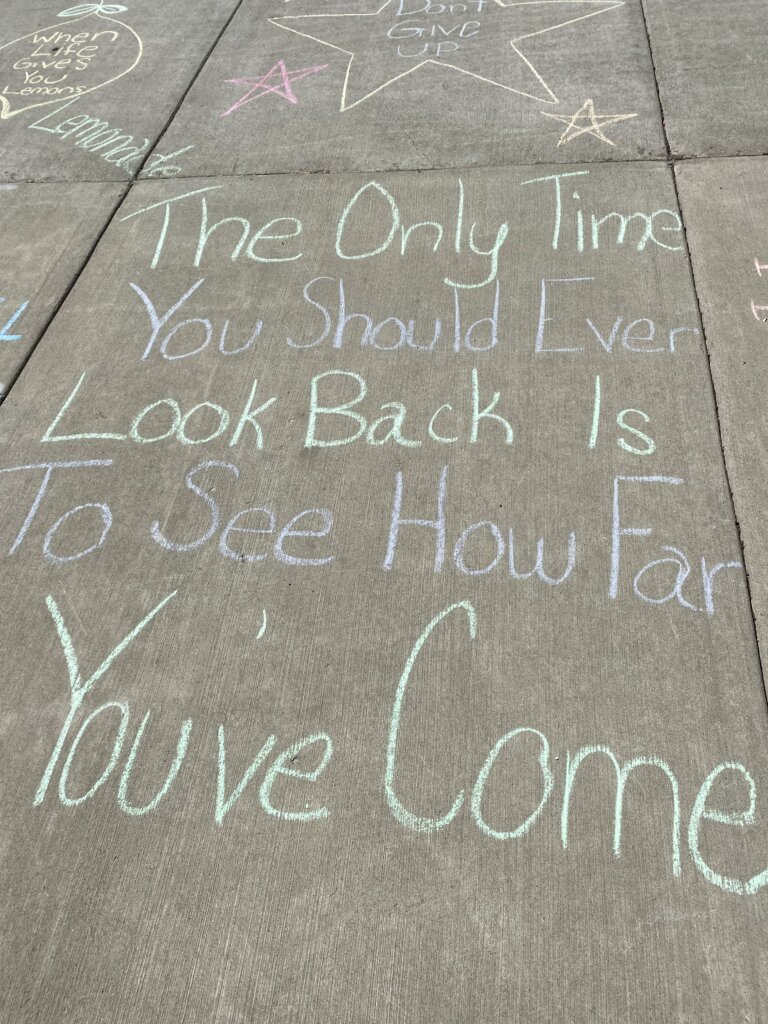 When
Life
Gives
You
Lemons
Lemonade
Don't
Give
UP
The Only Time
You Should Ever
Look Back Is
To See How Far
You've Come